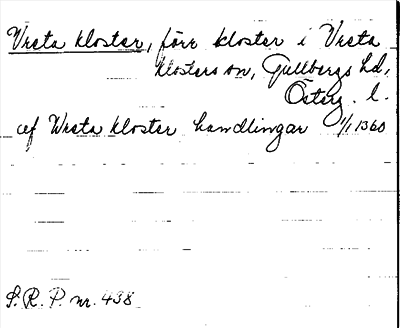 Vreta kloster, förr kloster i Vreta
klosters sn, Gullbergs hd,
Österg. l.
af Wreta kloster handlingar 1/1 1360
S. R. P. nr. 438